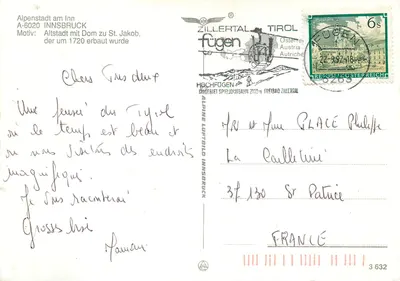 Alpenstadt am Inn
A-6020 INNSBRUCK
Motiv: Altstadt mit Dom zu St. Jakob,
der um 1720 erbaut wurde
Chers Tous deux
Une pensée du Tyrol
où le temps est beau et
où nous visitons des endroits
magnifiques.
Je vous raconterai
Grosses bises
ZILLERTAL TIROL
fügen
Österreich
Austria
Autriche
HOCHFÜGEN
6263
6 S
REPUBLIK ÖSTERREICH
ALPINE LUFTBILD INNSBRUCK
Mr et Mme PLACÉ Philippe
La Cailletière
37.130 St Patrice
FRANCE
3 632